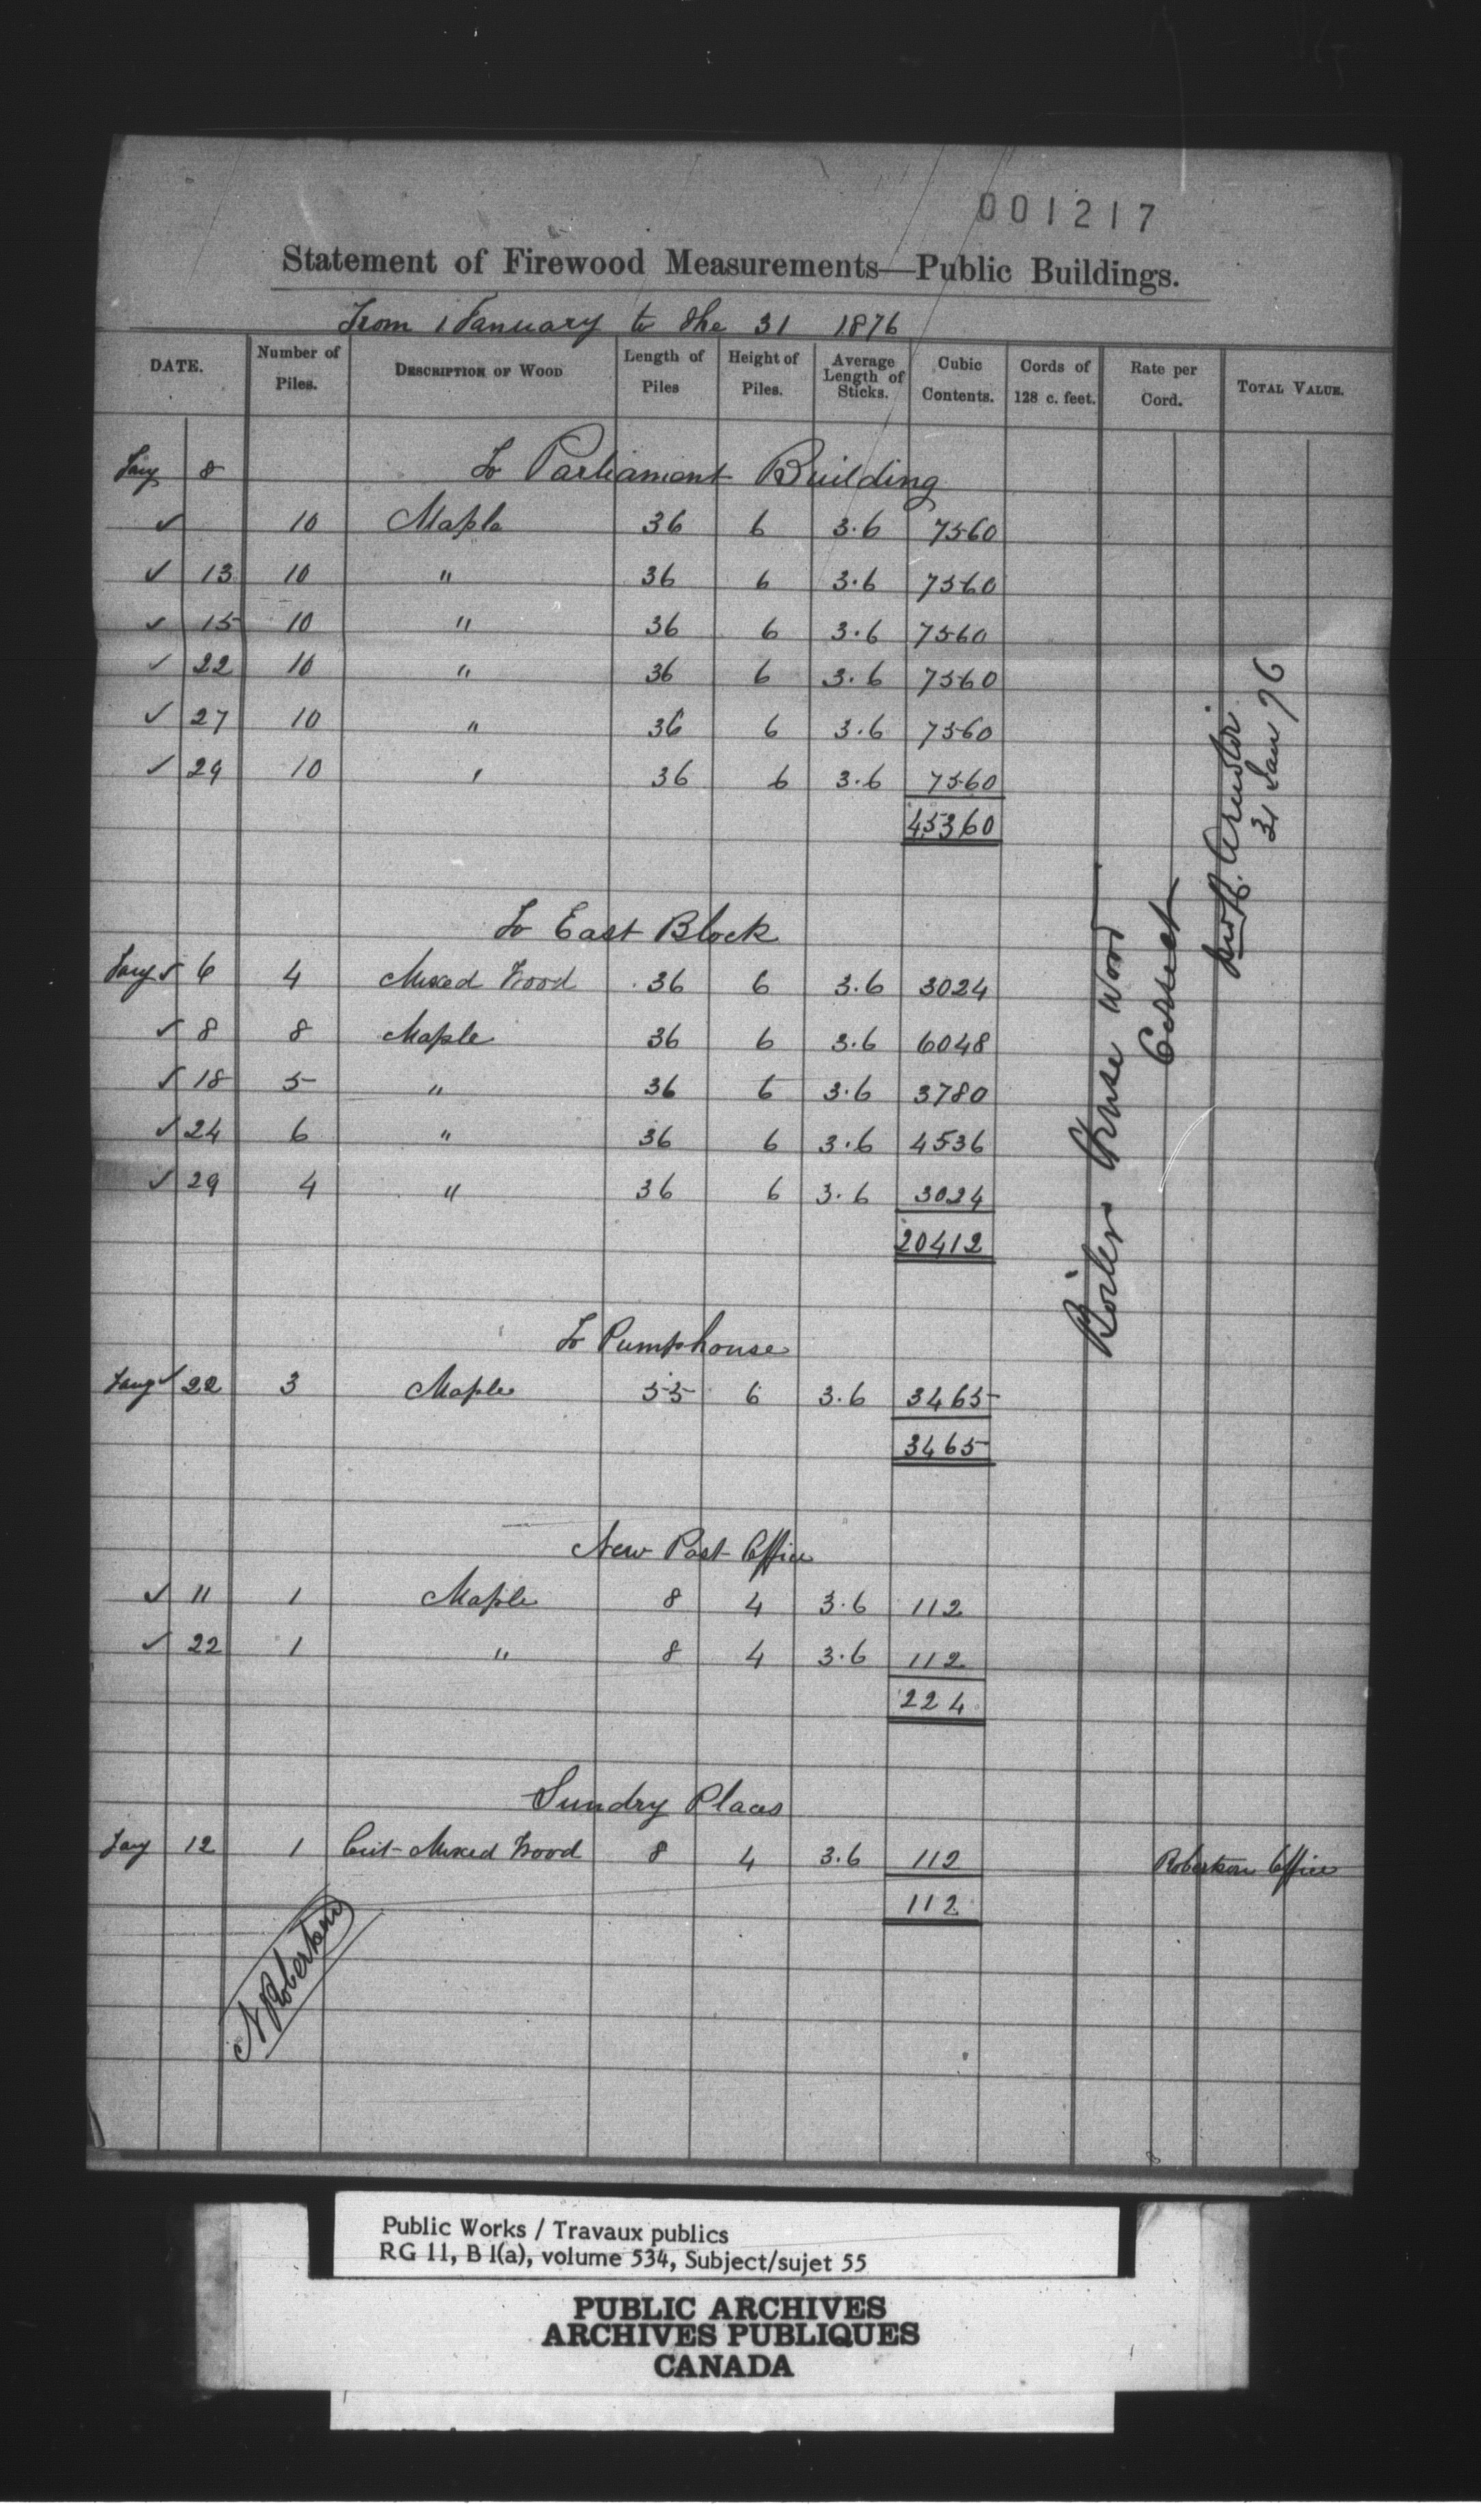 001217
Statement of Firewood Measurements—Public Buildings.
From 1 January to the 31 1876
DATE. Number of Piles. DESCRIPTION OF WOOD Length of Piles Height of Piles. Average Length of Sticks. Cubic Contents. Cords of 128 c. feet. Rate per Cord. TOTAL VALUE.
Jany 8 To Parliament Building
✓ 10 Maple 36 6 3.6 7560
✓ 13 10 " 36 6 3.6 7560
✓ 15 10 " 36 6 3.6 7560
✓ 22 10 " 36 6 3.6 7560
✓ 27 10 " 36 6 3.6 7560
✓ 29 10 " 36 6 3.6 7560
45360
To East Block
Jany ✓ 6 4 Mixed Wood 36 6 3.6 3024
✓ 8 8 Maple 36 6 3.6 6048
✓ 18 5 " 36 6 3.6 3780
✓ 24 6 " 36 6 3.6 4536
✓ 29 4 " 36 6 3.6 3024
20412
To Pumphouse
Jany ✓ 22 3 Maple 55 6 3.6 3465
3465
New Post Office
✓ 11 1 Maple 8 4 3.6 112
✓ 22 1 " 8 4 3.6 112
224
Sundry Places
Jany 12 1 Cut Mixed Wood 8 4 3.6 112 Robertson Office
112
N Robertson
Boiler House Wood
Correct
31 Jan 76
Public Works / Travaux publics
RG 11, B 1(a), volume 534, Subject/sujet 55
PUBLIC ARCHIVES
ARCHIVES PUBLIQUES
CANADA